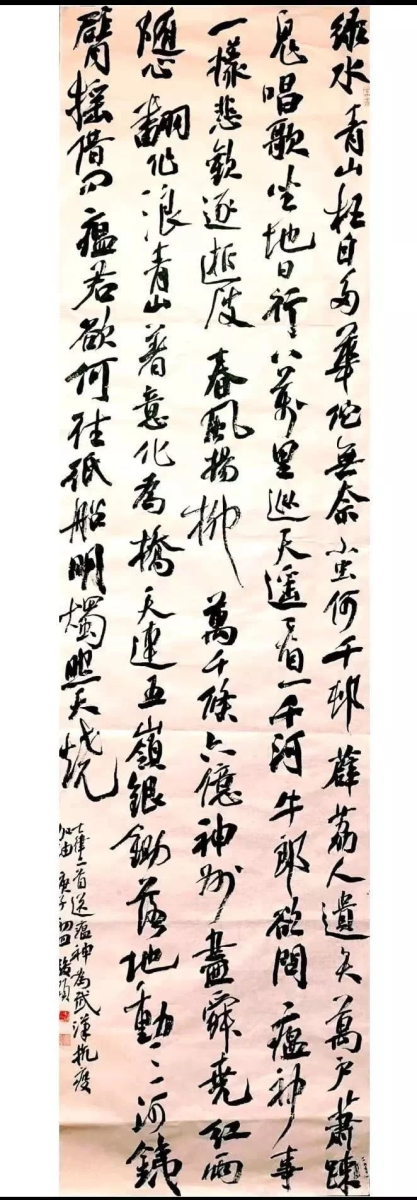 綠水青山枉自多華佗無奈小蟲何千邨薜荔人遺矢萬户蕭踈
鬼唱歌坐地日行八萬里巡天遥看一千河牛郎欲問瘟神事
一樣悲歡逐逝波春風楊柳萬千條六億神州盡舜堯紅雨
隨心翻作浪青山著意化爲橋天連五嶺銀鋤落地動三河鐵
臂摇借问瘟君欲何往紙船明燭照天燒
七律二首送瘟神為武漢抗疫
加油 庚子初四